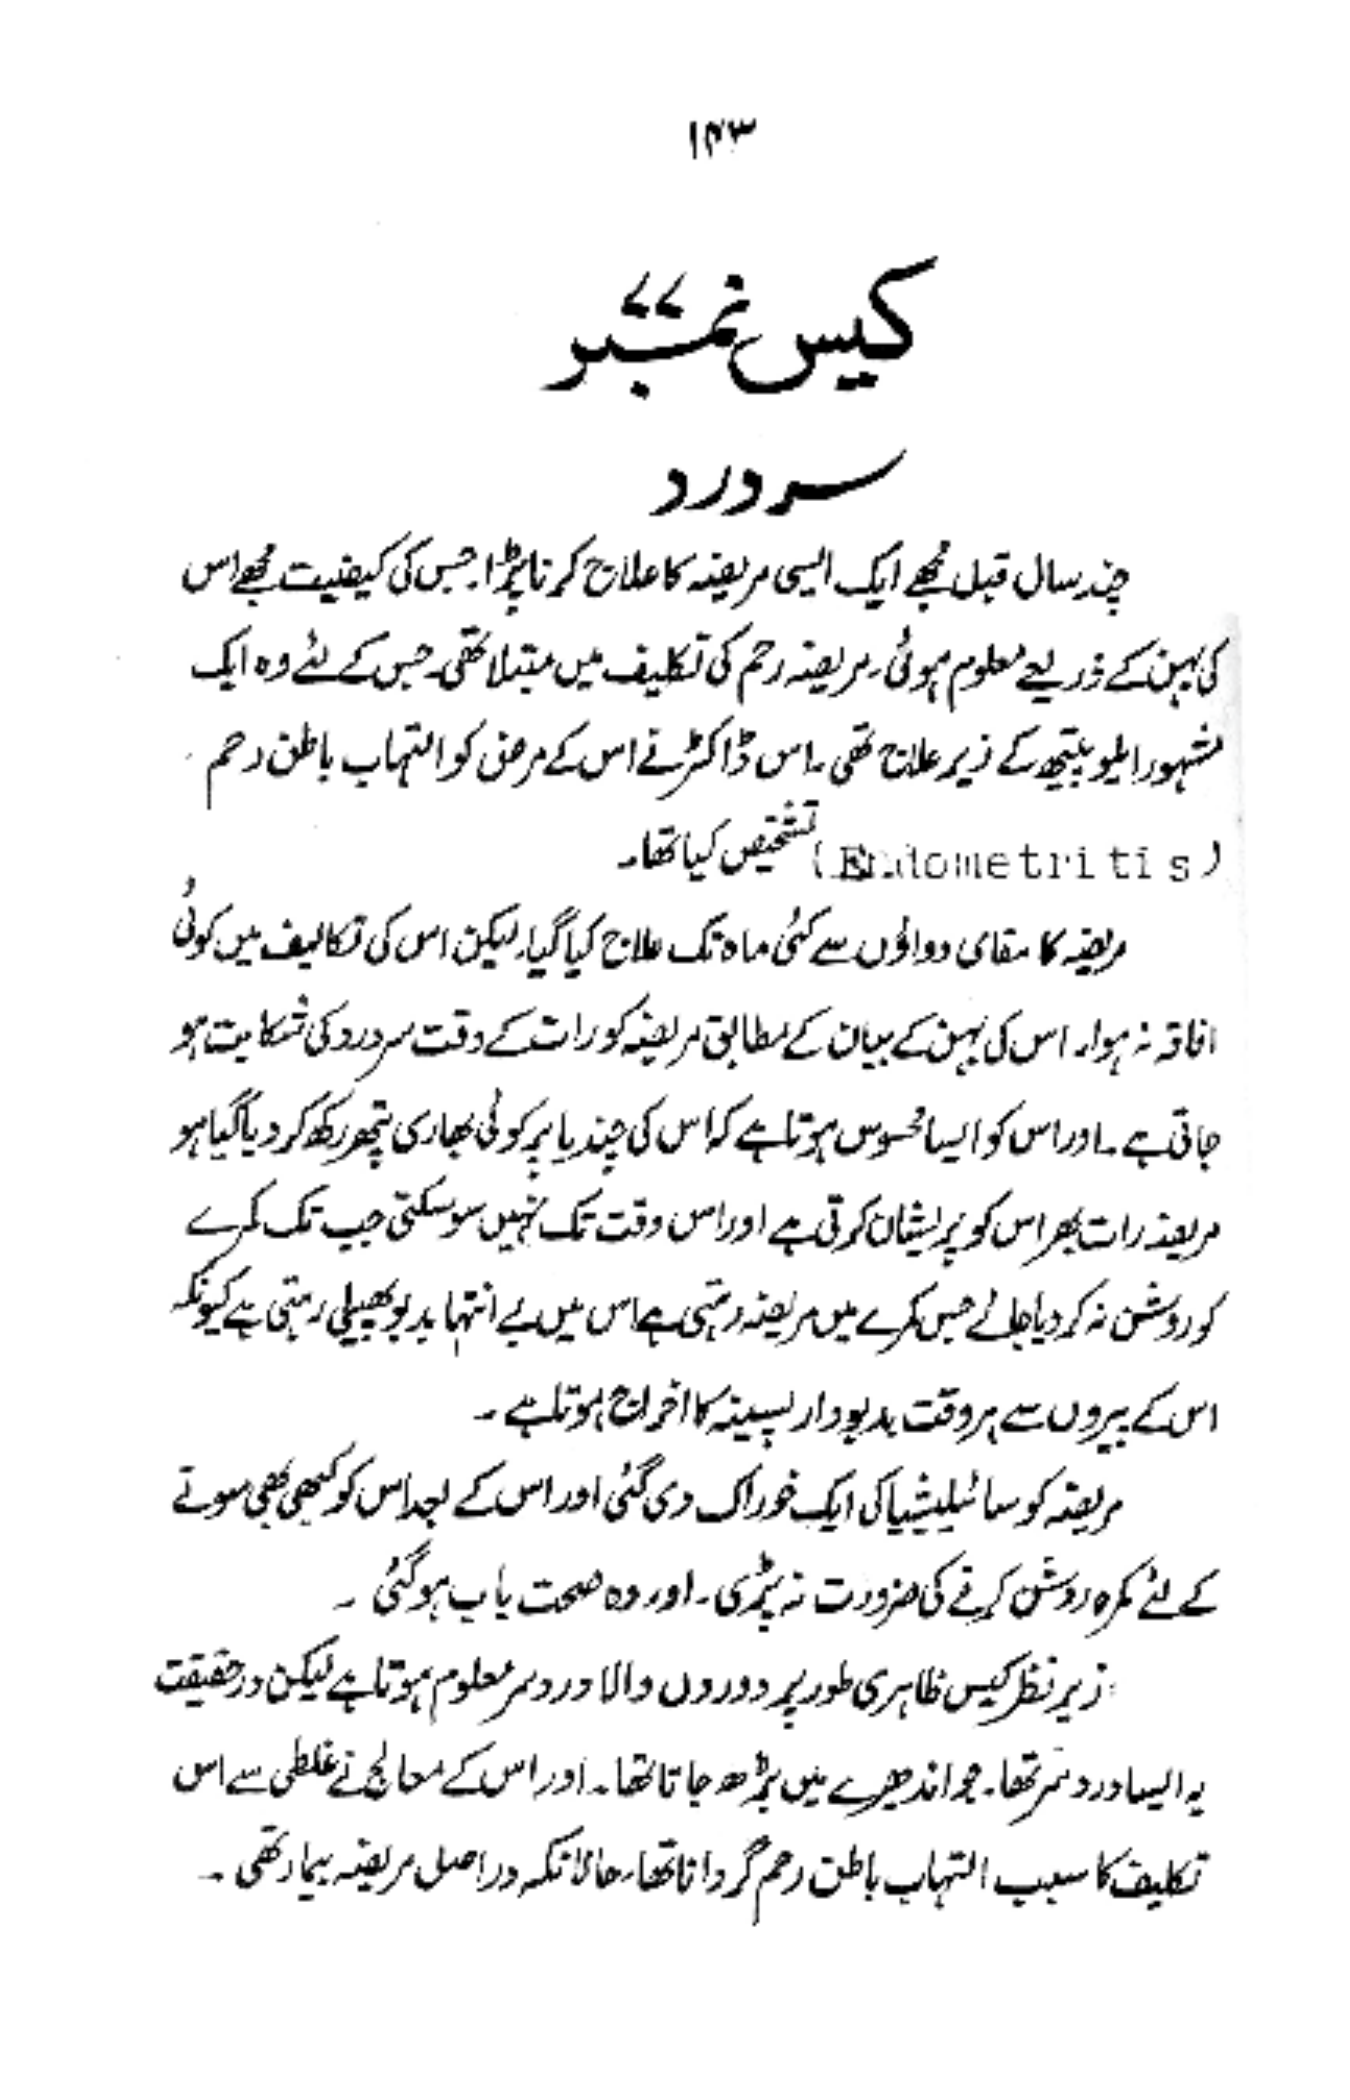 ۱۴۳
کیس نمبر ۷۷
سر درد
چند سال قبل مجھے ایک ایسی مریضہ کا علاج کرنا پڑا۔ جس کی کیفیت مجھے اس
کی بہن کے ذریعے معلوم ہوئی۔ مریضہ رحم کی تکلیف میں مبتلا تھی۔ جس کے لئے وہ ایک
مشہور ایلوپیتھ کے زیر علاج تھی۔ اس ڈاکٹر نے اس کے مرض کو التہاب باطن رحم
(Endometritis) تشخیص کیا تھا۔
مریضہ کا مقامی دواؤں سے کئی ماہ تک علاج کیا گیا۔ لیکن اس کی تکالیف میں کوئی
افاقہ نہ ہوا۔ اس کی بہن کے بیان کے مطابق مریضہ کو رات کے وقت سر درد کی شکایت ہو
جاتی ہے۔ اور اس کو ایسا محسوس ہوتا ہے کہ اس کی چندیا پر کوئی بھاری پتھر رکھ کر دیا گیا ہو
مریضہ رات بھر اس کو پریشان کرتی ہے اور اس وقت تک نہیں سو سکتی جب تک کمرے
کو روشن نہ کر دیا جائے جس کمرے میں مریضہ رہتی ہے اس میں بے انتہا بدبو پھیلی رہتی ہے کیونکہ
اس کے پیروں سے ہر وقت بدبودار پسینہ کا اخراج ہوتا ہے۔
مریضہ کو سائیلیشیا کی ایک خوراک دی گئی اور اس کے بعد اس کو کبھی بھی سونے
کے لئے کمرہ روشن کرنے کی ضرورت نہ پڑی۔ اور وہ صحت یاب ہو گئی۔
زیر نظر کیس ظاہری طور پر دوروں والا درد سر معلوم ہوتا ہے لیکن درحقیقت
یہ ایسا درد سر تھا۔ جو اندھیرے میں بڑھ جاتا تھا۔ اور اس کے معالج نے غلطی سے اس
تکلیف کا سبب التہاب باطن رحم گردانا تھا۔ حالانکہ دراصل مریضہ بیمار تھی۔